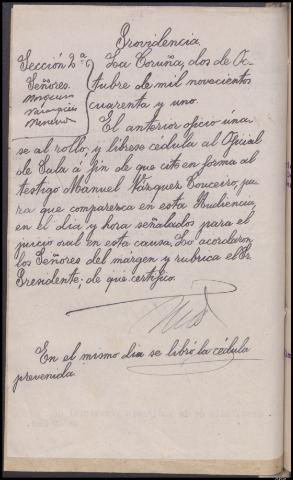 Providencia
Sección 2ª La Coruña, dos de Oc-
Señores. tubre de mil novecientos
cuarenta y uno.
El anterior oficio una-
se al rollo, y líbrese cédula al Oficial
de Sala á fin de que cite en forma al
testigo Manuel Vázquez Couceiro, pa-
ra que comparezca en esta Audiencia,
en el día y hora señalados para el
juicio oral en esta causa. Lo acordaron
los Señores del márgen y rubrica el Sr.
Presidente: de que certifico.
En el mismo dia se libró la cédula
prevenida.